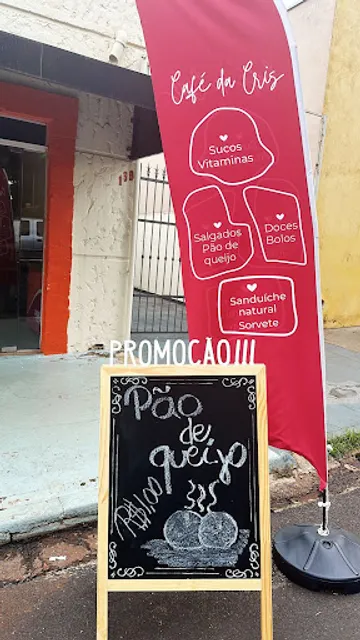 Café da Cris
Sucos
Vitaminas
Salgados
Pão de
queijo
Doces
Bolos
Sanduíche
natural
Sorvete
138
PROMOÇÃO!!!
Pão
de
queijo
R$1,00